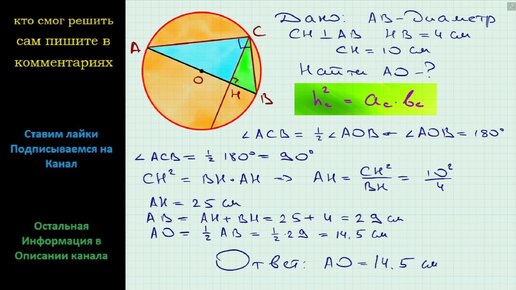 кто смог решить
сам пишите в
комментариях
Ставим лайки
Подписываемся на
Канал
Остальная
Информация в
Описании канала
A
C
O
H
B
Дано: AB - Диаметр
CH ⊥ AB HB = 4 см
CH = 10 см
Найти AO - ?
h_c² = a_c · b_c
∠ACB = ½ ∠AOB - ∠AOB = 180°
∠ACB = ½ 180° = 90°
CH² = BH · AH => AH = CH²/BH = 10²/4
AH = 25 см
AB = AH + BH = 25 + 4 = 29 см
AO = ½ AB = ½ · 29 = 14,5 см
Ответ: AO = 14,5 см